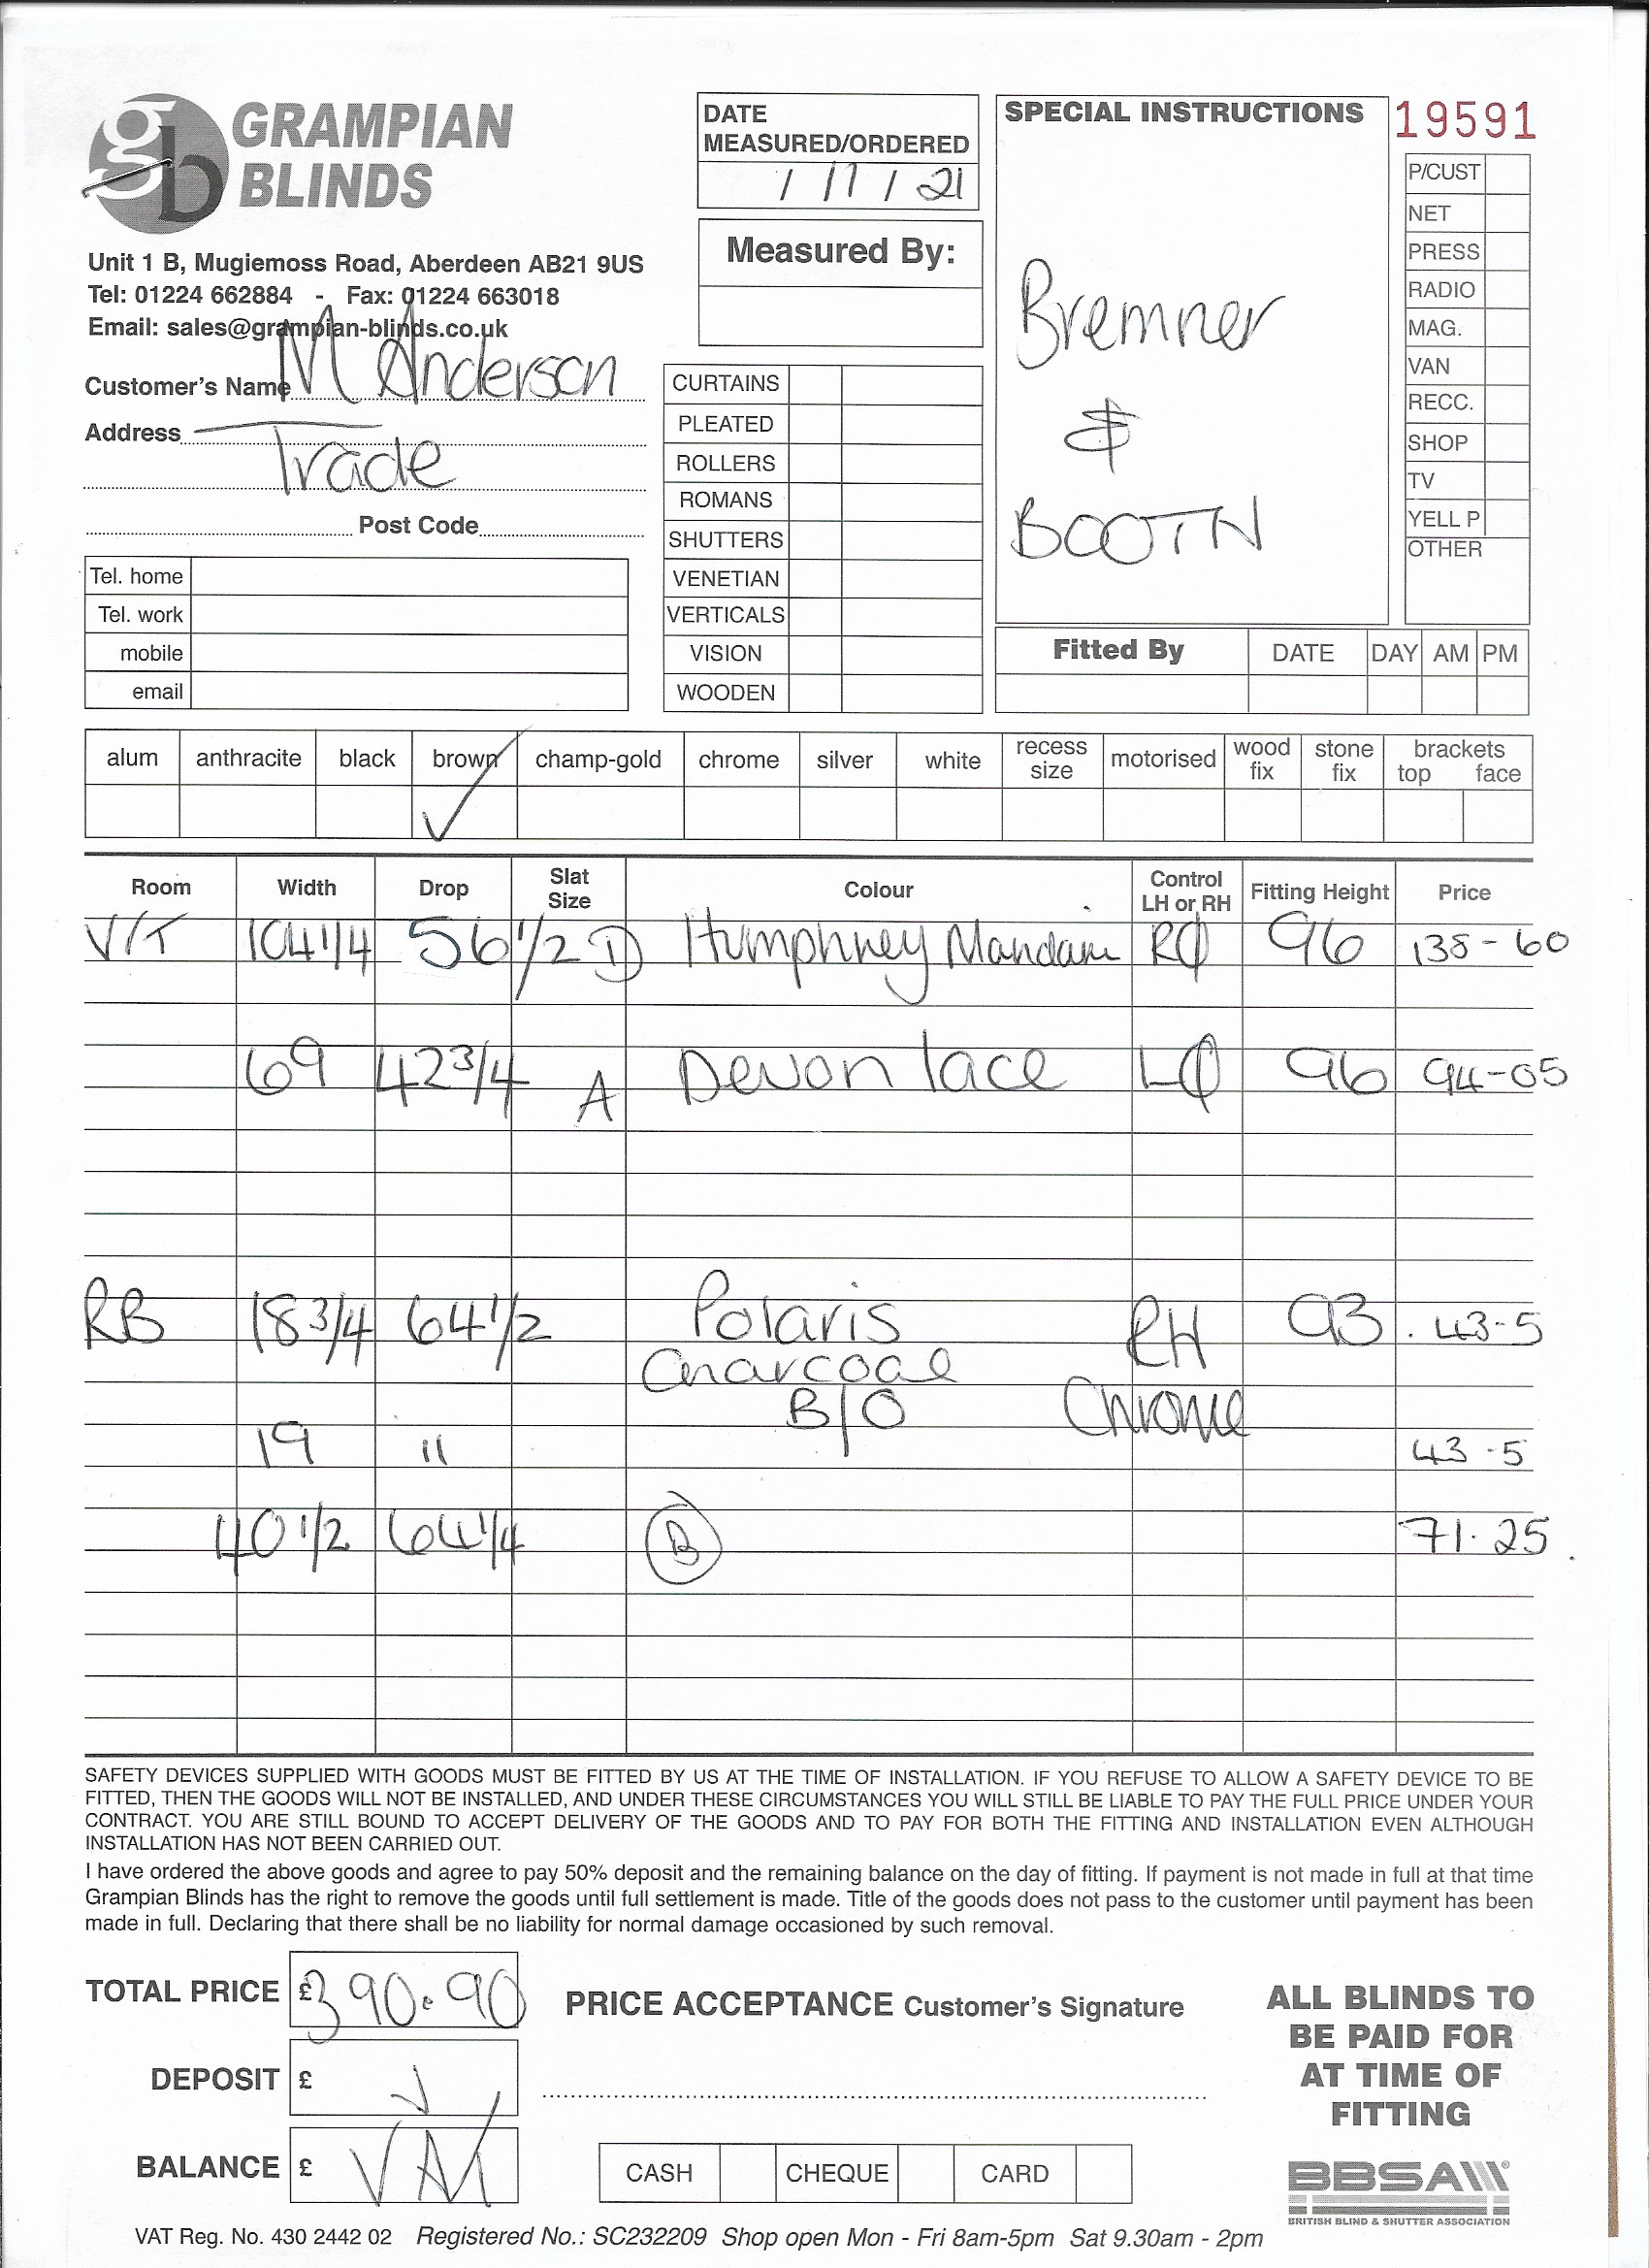 gb GRAMPIAN BLINDS
Unit 1 B, Mugiemoss Road, Aberdeen AB21 9US
Tel: 01224 662884 - Fax: 01224 663018
Email: sales@grampian-blinds.co.uk
Customer's Name M Anderson
Address
Trade
Post Code
Tel. home
Tel. work
mobile
email
DATE
MEASURED/ORDERED
1 / 7 / 21
Measured By:
CURTAINS
PLEATED
ROLLERS
ROMANS
SHUTTERS
VENETIAN
VERTICALS
VISION
WOODEN
SPECIAL INSTRUCTIONS
Bremner
&
BOOTH
19591
P/CUST
NET
PRESS
RADIO
MAG.
VAN
RECC.
SHOP
TV
YELL P
OTHER
Fitted By DATE DAY AM PM
alum anthracite black brown champ-gold chrome silver white recess size motorised wood fix stone fix brackets top face
✓
Room Width Drop Slat Size Colour Control LH or RH Fitting Height Price
V/T 104 1/4 56 1/2 D Humphney 96 138-60
69 42 3/4 A Devon lace 96 94-05
RB 18 3/4 64 1/2 Polaris RH 93 43-5
Charcoal
B/O Chrome
19 11 43-5
40 1/2 64 1/4 B 71.25
SAFETY DEVICES SUPPLIED WITH GOODS MUST BE FITTED BY US AT THE TIME OF INSTALLATION. IF YOU REFUSE TO ALLOW A SAFETY DEVICE TO BE
FITTED, THEN THE GOODS WILL NOT BE INSTALLED, AND UNDER THESE CIRCUMSTANCES YOU WILL STILL BE LIABLE TO PAY THE FULL PRICE UNDER YOUR
CONTRACT. YOU ARE STILL BOUND TO ACCEPT DELIVERY OF THE GOODS AND TO PAY FOR BOTH THE FITTING AND INSTALLATION EVEN ALTHOUGH
INSTALLATION HAS NOT BEEN CARRIED OUT.
I have ordered the above goods and agree to pay 50% deposit and the remaining balance on the day of fitting. If payment is not made in full at that time
Grampian Blinds has the right to remove the goods until full settlement is made. Title of the goods does not pass to the customer until payment has been
made in full. Declaring that there shall be no liability for normal damage occasioned by such removal.
TOTAL PRICE £390.90
DEPOSIT £
BALANCE £ VAT
PRICE ACCEPTANCE Customer's Signature
CASH CHEQUE CARD
ALL BLINDS TO
BE PAID FOR
AT TIME OF
FITTING
BBSA
BRITISH BLIND & SHUTTER ASSOCIATION
VAT Reg. No. 430 2442 02 Registered No.: SC232209 Shop open Mon - Fri 8am-5pm Sat 9.30am - 2pm